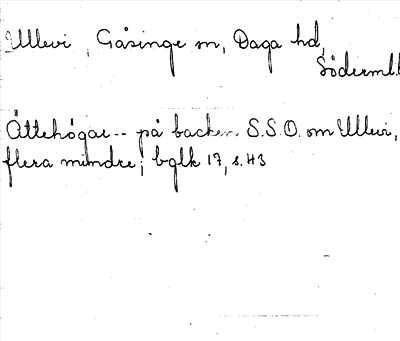 Ullevi, Gåsinge sn, Daga hd,
Söderml.
Ättehögar -- på backen S.S.O. om Ullevi,
flera mindre; bglk 17, s. 43